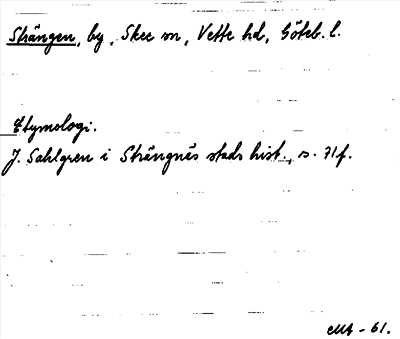 Strängen, by, Skee sn, Vette hd, Göteb. l.
Etymologi.
J. Sahlgren i Strängnäs stads hist., s. 71f.
-61.